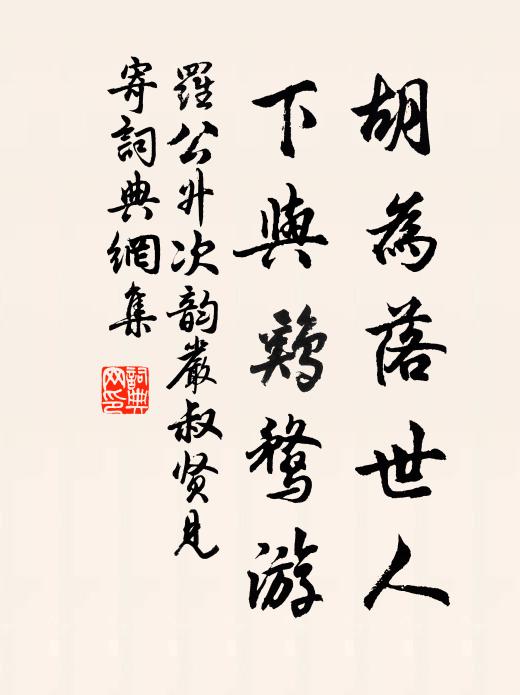 胡為落世人
下與鷄鶩游
羅公升次韵嚴叔贤見
寄詞典網集
詞典网印